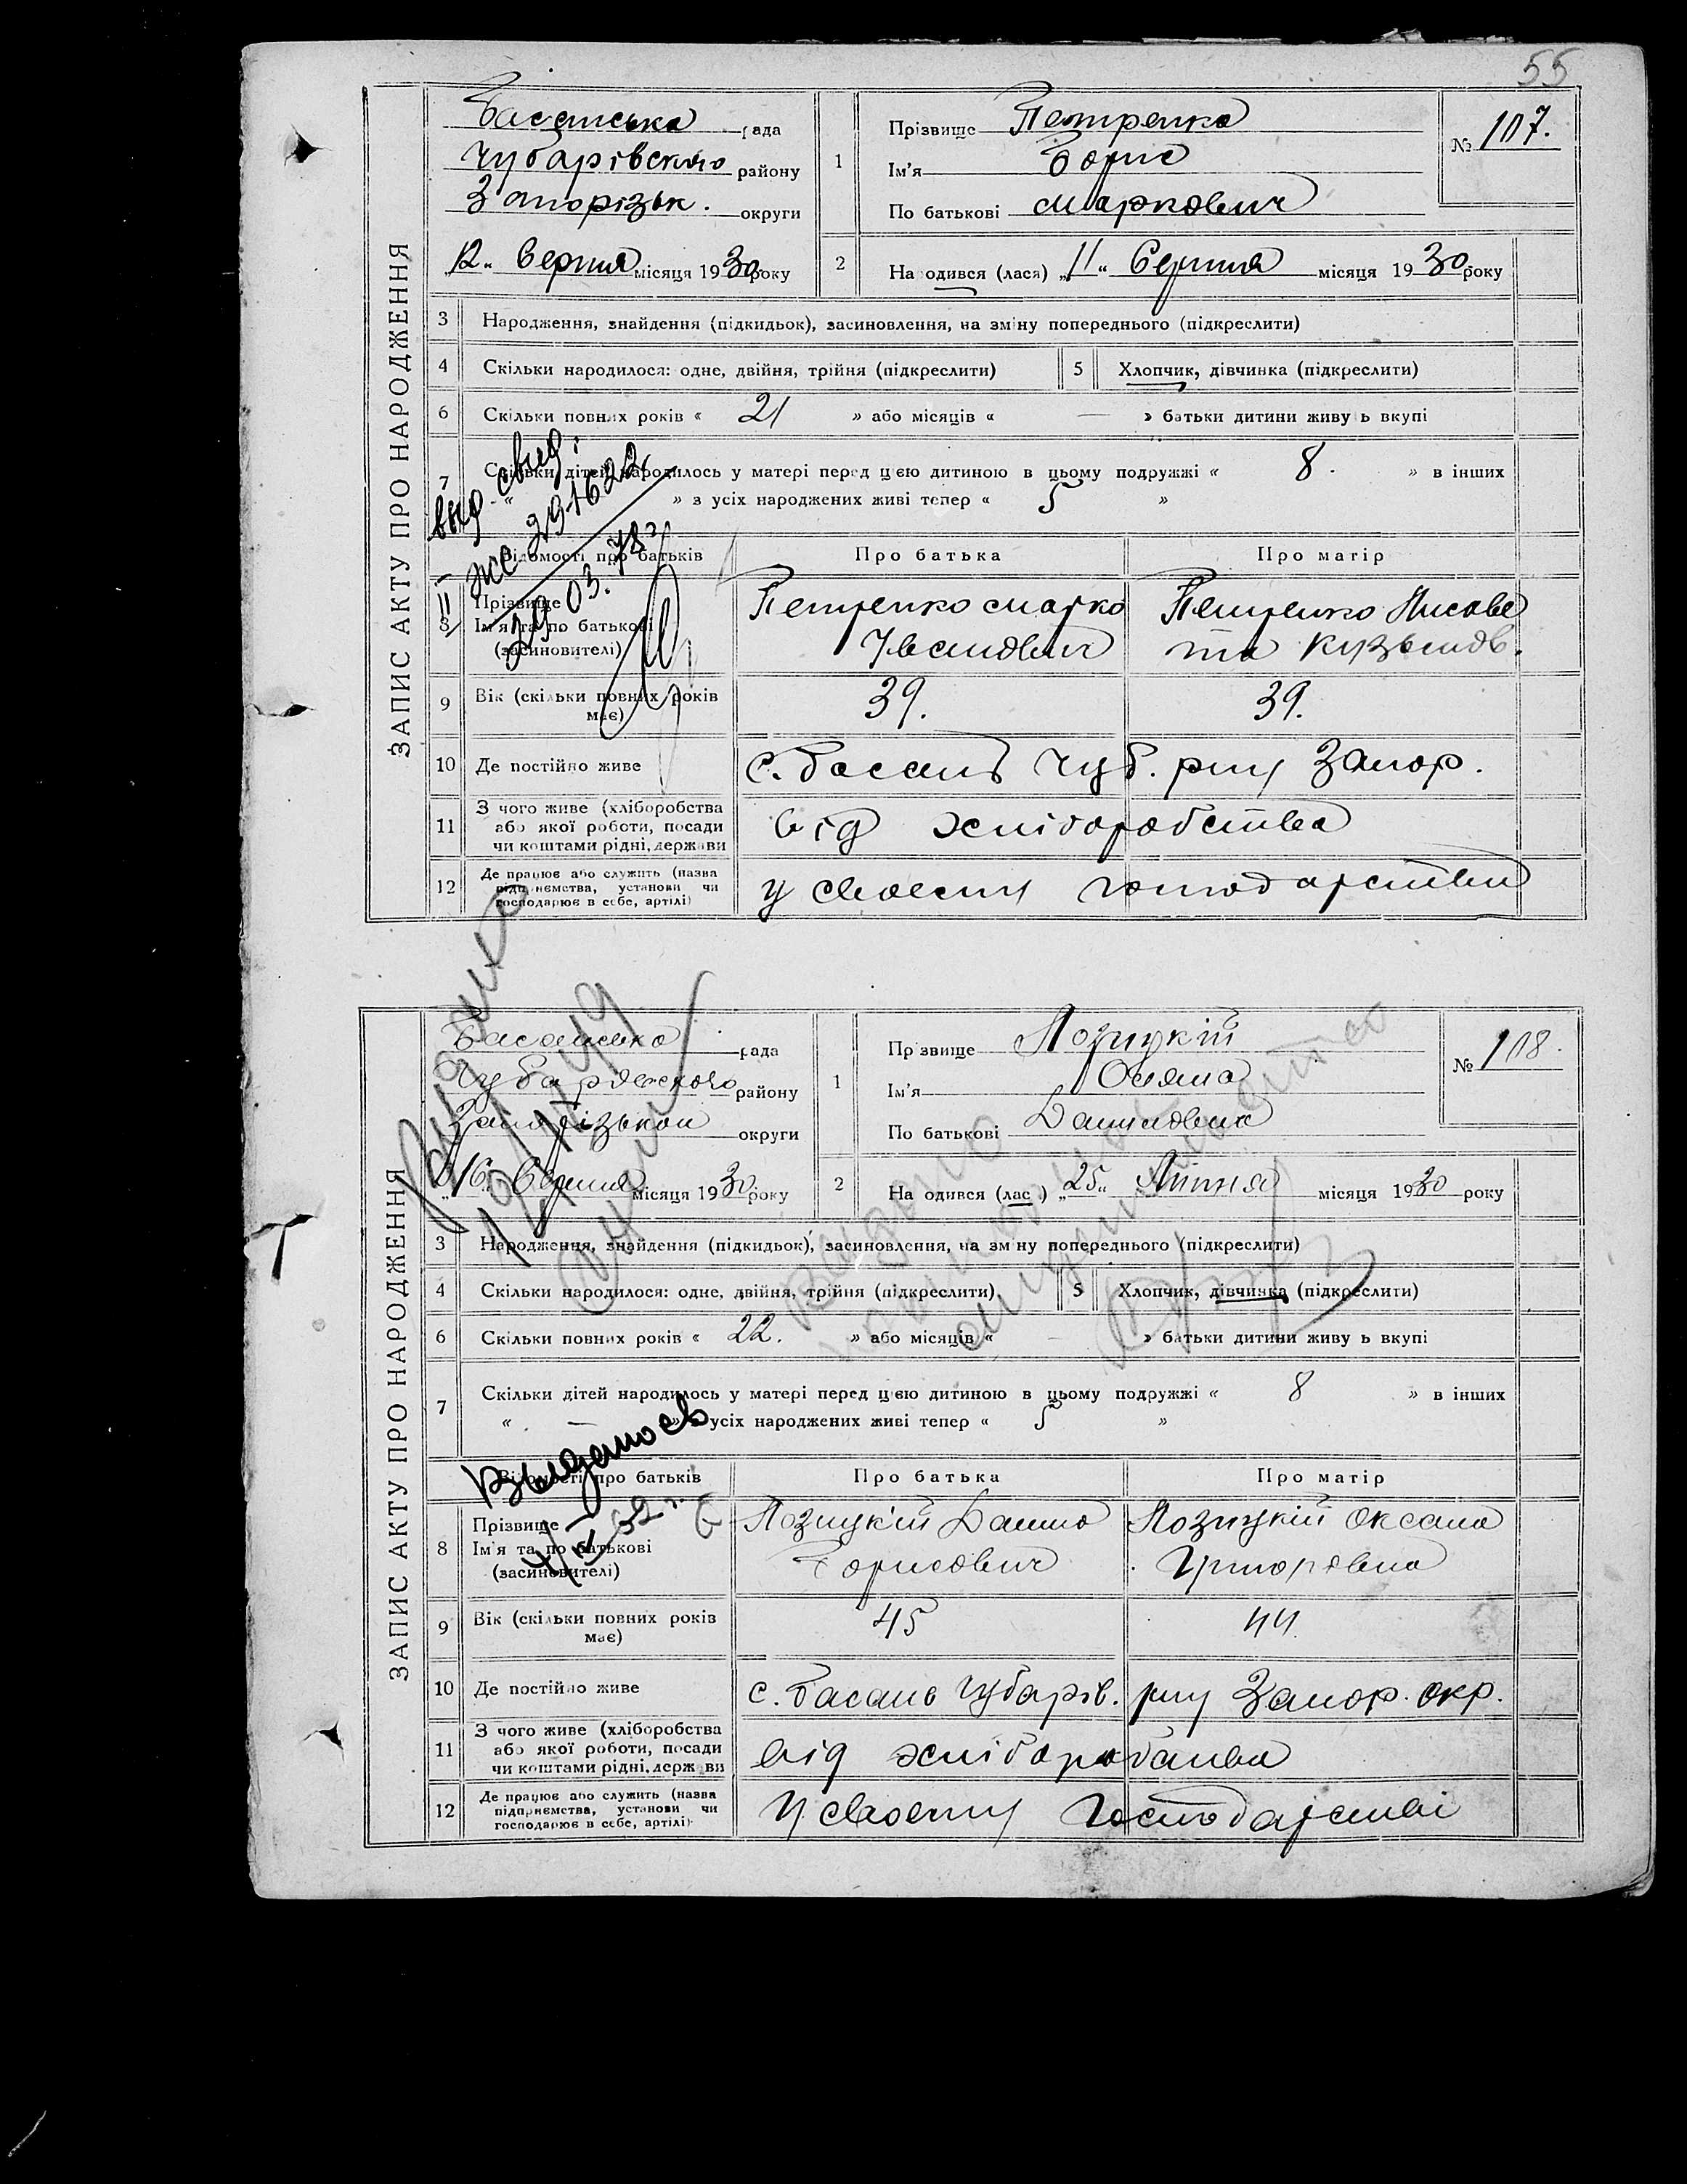 55
ЗАПИС АКТУ ПРО НАРОДЖЕННЯ
Басанська рада
Чубарівського району
Запорізьк. округи
„12“ Серпня місяця 1930 року
1
Прізвище Петренко
Ім'я Борис
По батькові Маркович
№ 107.
2
Народився (лася) „11“ Серпня місяця 1930 року
3 Народження, знайдення (підкидьок), засиновлення, на зміну попереднього (підкреслити)
4 Скільки народилося: одне, двійня, трійня (підкреслити)
5 Хлопчик, дівчинка (підкреслити)
6 Скільки повних років « 21 » або місяців « — » батьки дитини живуть вкупі
7 Скільки дітей народилось у матері перед цією дитиною в цьому подружжі « 8. » в інших
« » з усіх народжених живі тепер « 5 »
выд. свид:
II ЖС 291622
29 03. 78г
Відомості про батьків
Про батька
Про матір
8 Прізвище
Ім'я та по батькові
(засиновителі)
Петренко Марко
Іванович
Петренко Лисаве
та Кузьмов.
9 Вік (скільки повних років
має)
39.
39.
10 Де постійно живе
с. Басань Чуб. р-ну Запор.
11 З чого живе (хліборобства
або якої роботи, посади
чи коштами рідні, держави
від хліборобства
12 Де працює або служить (назва
підприємства, установи чи
господарює в себе, артілі)
у своєму господарстви
ЗАПИС АКТУ ПРО НАРОДЖЕННЯ
Басанська рада
Чубарівского району
Запорізькой округи
„16“ Серпня місяця 1930 року
1
Прізвище Лозицкій
Ім'я
По батькові Даниловна
№ 108.
2
Народився (лас ) „25“ Липня місяця 1930 року
3 Народження, знайдення (підкидьок), засиновлення, на зміну попереднього (підкреслити)
4 Скільки народилося: одне, двійня, трійня (підкреслити)
5 Хлопчик, дівчинка (підкреслити)
6 Скільки повних років « 22. » або місяців « — » батьки дитини живуть вкупі
7 Скільки дітей народилось у матері перед цією дитиною в цьому подружжі « 8 » в інших
« — » з усіх народжених живі тепер « 5 »
Відомості про батьків
Про батька
Про матір
8 Прізвище
Ім'я та по батькові
(засиновителі)
Лозицкій Данило
Борисович
Лозицкій Оксана
Григоровна
9 Вік (скільки повних років
має)
45
44.
10 Де постійно живе
с. Басань Чубарів. р-ну Запор. окр.
11 З чого живе (хліборобства
або якої роботи, посади
чи коштами рідні, держави
від хліборобства
12 Де працює або служить (назва
підприємства, установи чи
господарює в себе, артілі)
У своєму господарстві